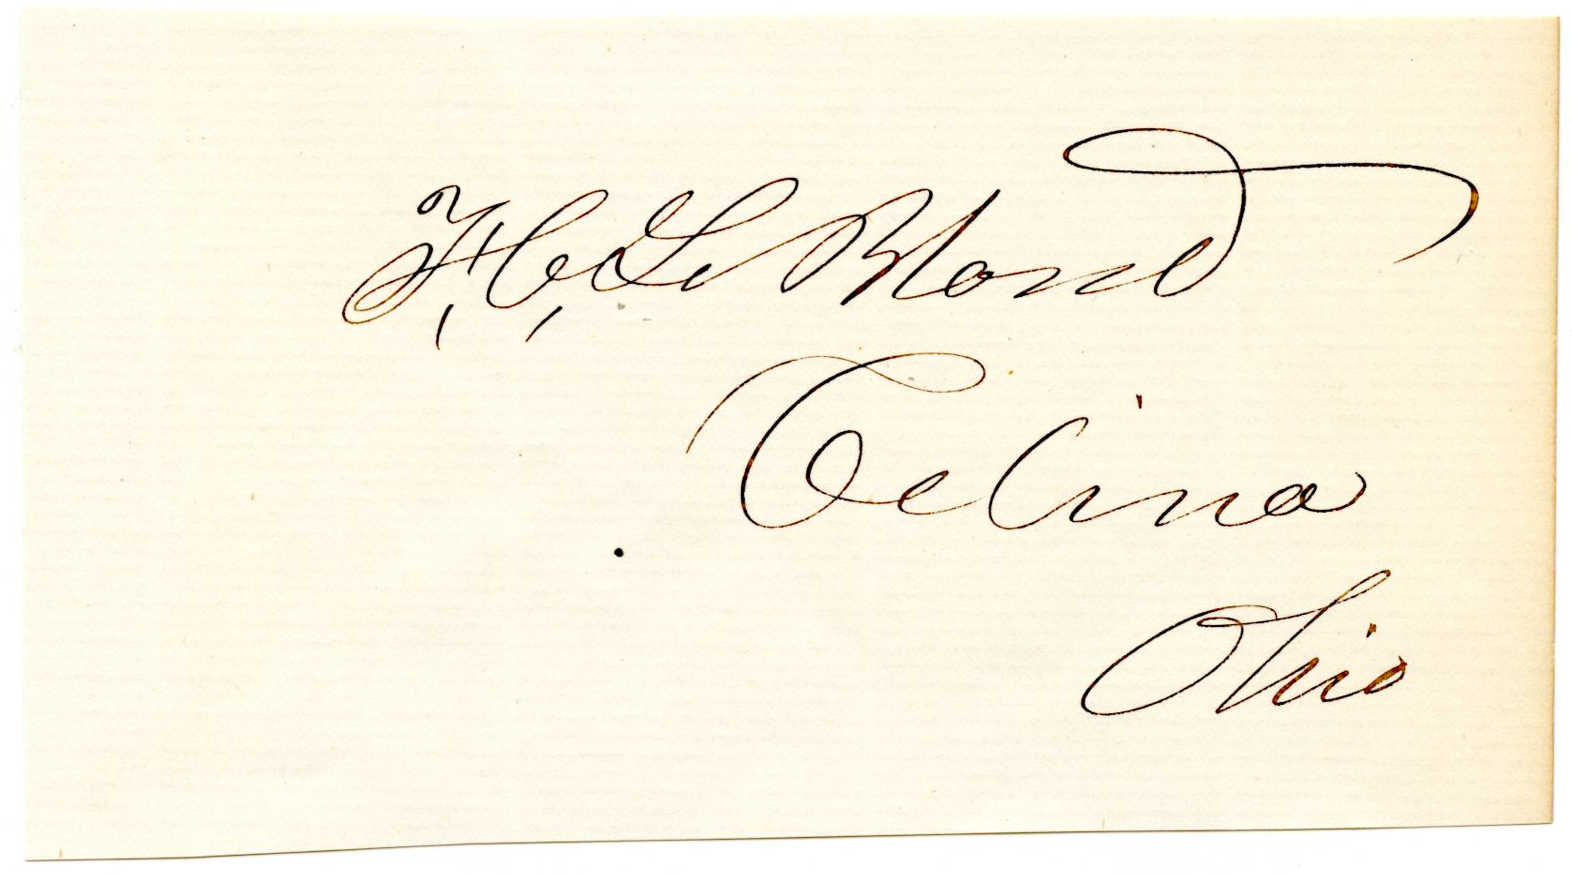 F, C, Le Blond
Celina
Ohio